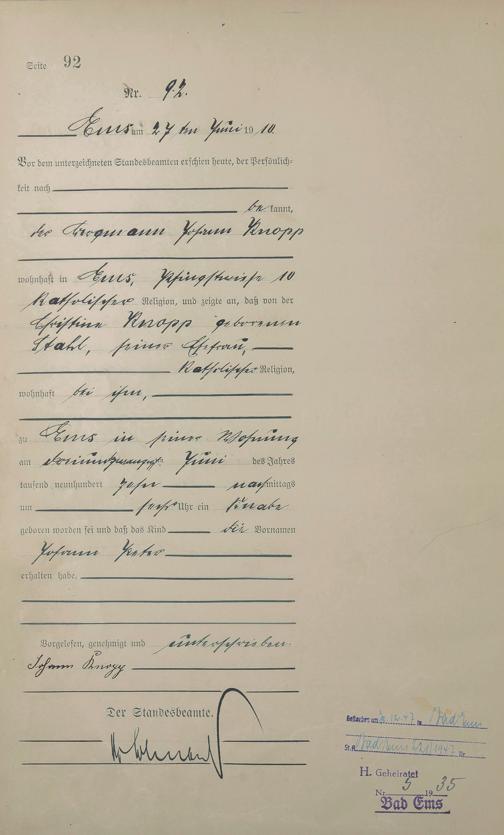 Seite 92
Nr. 92.
Ems am 27 ten Juni 1910.
Vor dem unterzeichneten Standesbeamten erschien heute, der Persönlich-
keit nach
bekannt,
der Bergmann Johann Knopp
wohnhaft in Ems, Pfingstwiese 10
katholischer Religion, und zeigte an, daß von der
Christine Knopp geborenen
Stahl, seiner Ehefrau,
katholischer Religion,
wohnhaft bei ihm,
zu Ems in seiner Wohnung
am dreiundzwanzigsten Juni des Jahres
tausend neunhundert zehn nachmittags
um sechs Uhr ein Knabe
geboren worden sei und daß das Kind die Vornamen
Johann Peter
erhalten habe.
Vorgelesen, genehmigt und unterschrieben.
Johann Knopp
Der Standesbeamte.
Gestorben am 12.47 in Bad Ems
St.A. Bad Ems 1947 Nr.
H. Geheiratet
Nr. 5 1935
Bad Ems